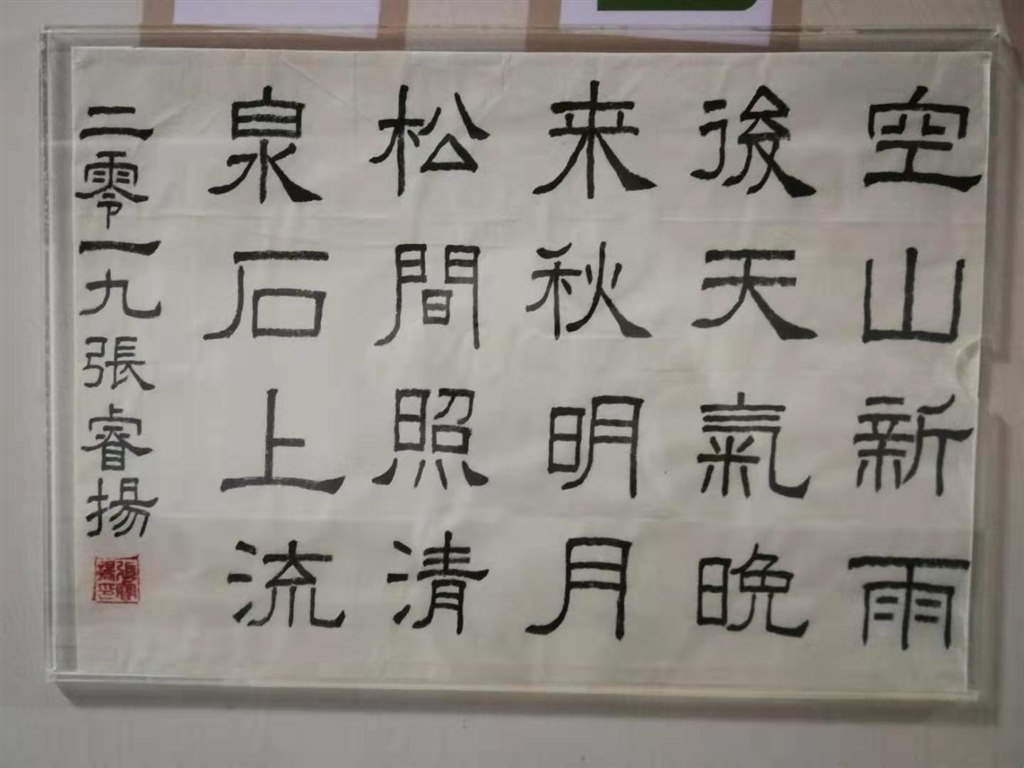 空山新雨
後天氣晚
来秋明月
松間照清
泉石上流
二零一九張睿揚